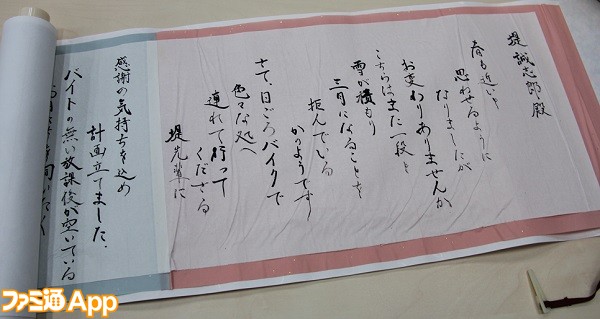 堤誠志郎殿
春も近いと
思わせるように
なりましたが
お変わりありませんか
こちらはまた一段と
雪が積もり
三月になることを
拒んでいる
かのようです
さて、日ごろバイクで
色々な処へ
連れて行って
くださる
堤先輩に
感謝の気持ちを込め
計画立てました。
バイトの無い放課後が空いている
ファミ通App